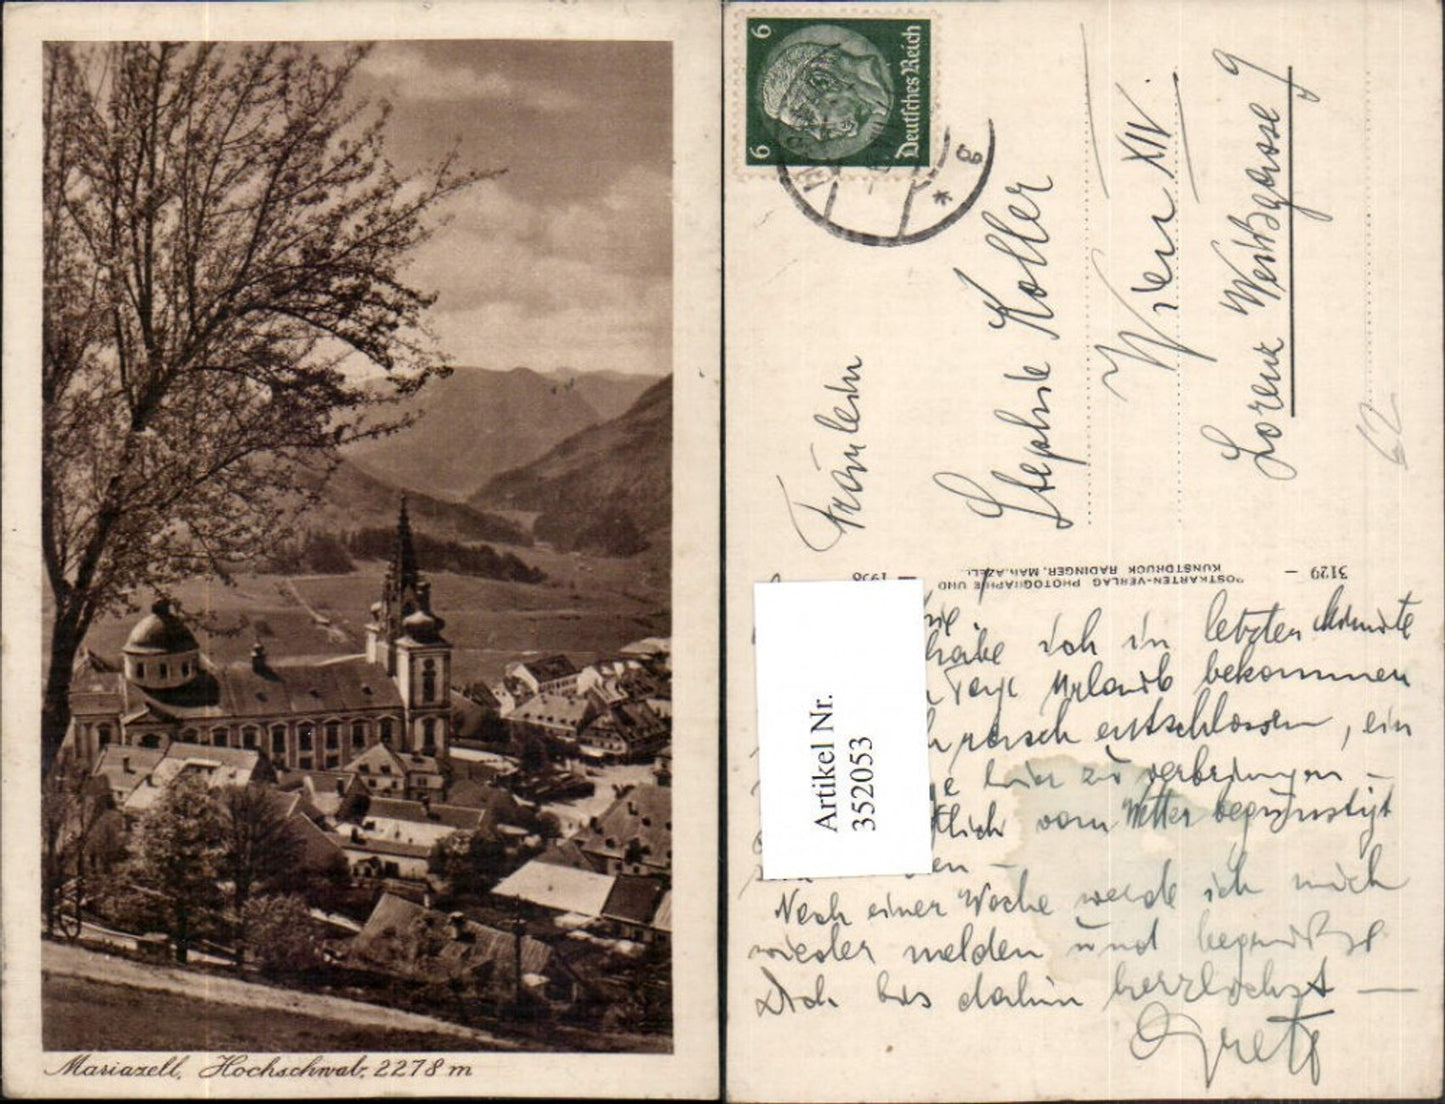 Mariazell, Hochschwab, 2278 m
6
6
Deutsches Reich
8
Fräulein
Stephnie Koller
Wien XIV.
Lorenz Weißgasse 9
62
3129 — 1938
POSTKARTEN-VERLAG PHOTOGRAPHIE UND
KUNSTDRUCK RADINGER, MARIAZELL
Artikel Nr.
352053
habe ich in letzter Minute
Tage Urlaub bekommen
rasch entschlossen, ein
hier zu verbringen –
vom Wetter begünstigt
Nach einer Woche werde ich mich
wieder melden und begrüße
Dich bis dahin herzlichst —
Gretl